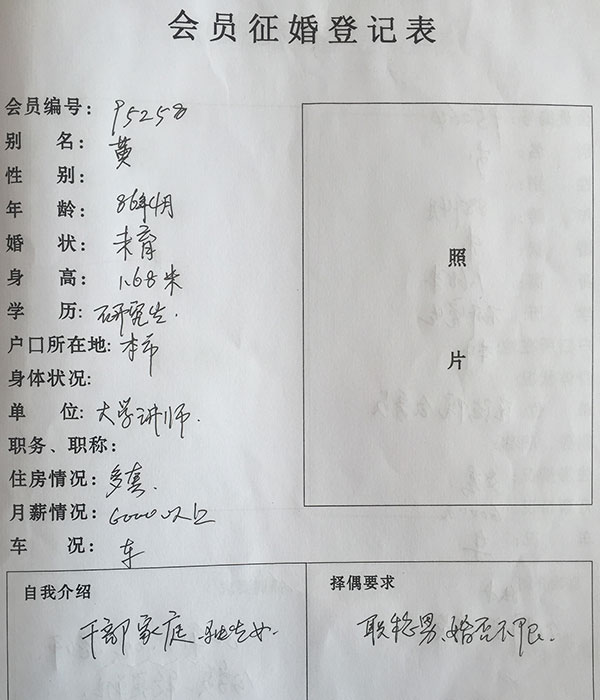 会员征婚登记表
会员编号: P5258
别 名: 黄
性 别:
年 龄: 86年4月
婚 状: 未育
身 高: 1.68米
学 历: 研究生.
户口所在地: 本市
身体状况:
单 位: 大学讲师.
职务、职称:
住房情况: 多套.
月薪情况: 6000以上
车 况: 车
照
片
自我介绍
干部家庭 独生女.
择偶要求
职稳男、婚否不限.